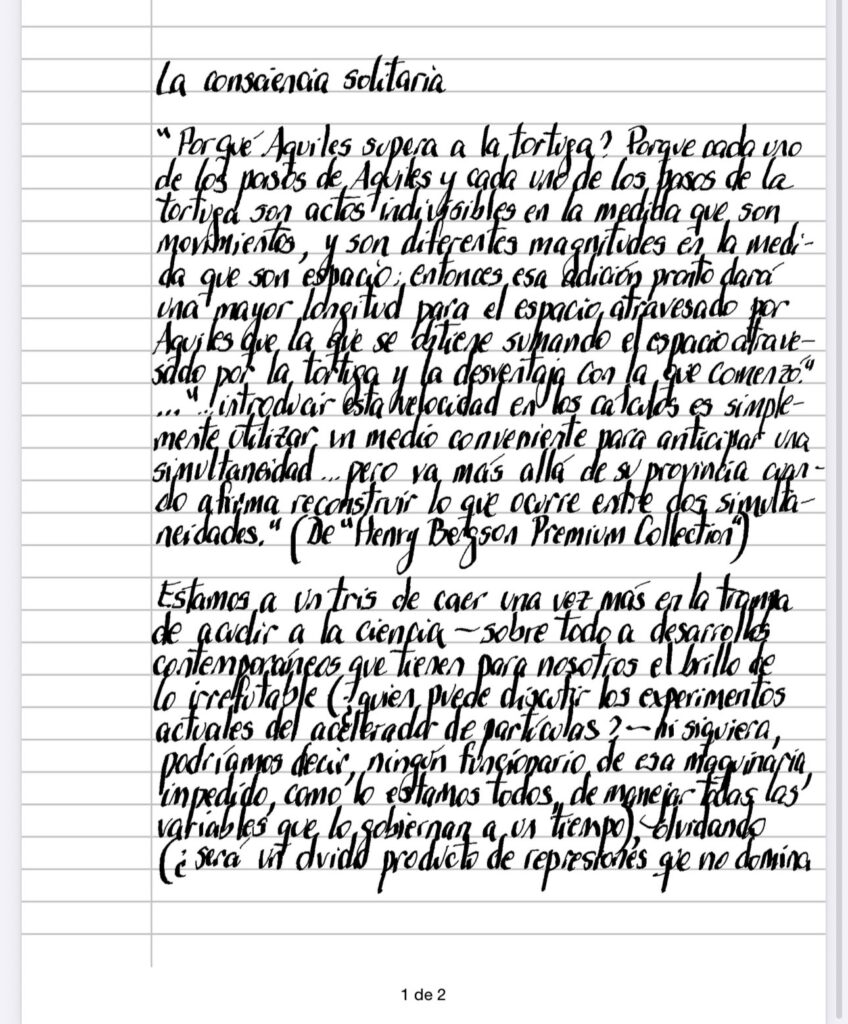 La consciencia solitaria
"Porqué Aquiles supera a la tortuga? Porque cada uno
de los pasos de Aquiles y cada uno de los pasos de la
tortuga son actos indivisibles en la medida que son
movimientos, y son diferentes magnitudes en la medi-
da que son espacio; entonces esa adición pronto dará
una mayor longitud para el espacio atravesado por
Aquiles que la que se obtiene sumando el espacio atrave-
sado por la tortuga y la desventaja con la que comenzó."
..."...introducir esta velocidad en los calculos es simple-
mente utilizar un medio conveniente para anticipar una
simultaneidad... pero va más allá de su provincia cuan-
do afirma reconstruir lo que ocurre entre dos simulta-
neidades." (De "Henry Bergson Premium Collection")
Estamos a un tris de caer una vez más en la trampa
de acudir a la ciencia - sobre todo a desarrollos
contemporáneos que tienen para nosotros el brillo de
lo irrefutable (¿quien puede discutir los experimentos
actuales del acelerador de partículas? - ni siquiera,
podríamos decir, ningún funcionario de esa maquinaria,
impedido, como lo estamos todos, de manejar todas las
variables que lo gobiernan a un tiempo), olvidando
(¿será un olvido producto de represiones que no domina
1 de 2